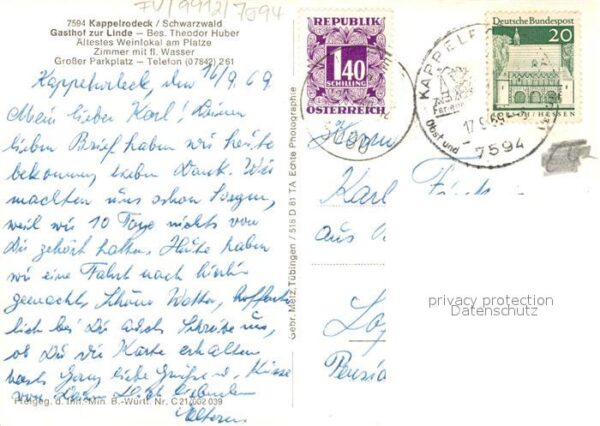 FU/9412/7594
7594 Kappelrodeck / Schwarzwald
Gasthof zur Linde — Bes. Theodor Huber
Ältestes Weinlokal am Platze
Zimmer mit fl. Wasser
Großer Parkplatz — Telefon (07842) 261
Kappelrodeck, den 16/9. 69
Mein lieber Karl! Deinen
lieben Brief haben wir heute
bekommen, vielen Dank. Wir
machten uns schon Sorgen,
weil wir 10 Tage nichts von
Dir gehört hatten. Heute haben
wir eine Fahrt nach
gemacht. Schöne Wetter, hoffent-
lich bei Dir auch. Schreibe uns,
ob Du die Karte erhalten
hast. Ganz liebe Grüße u. Küsse
von Deinen Dich liebenden
Eltern
Freigeg. d. Inn. Min. B.-Württ. Nr. C 21/002 039
Gebr. Metz, Tübingen / 518 D 81 TA Echte Photographie
REPUBLIK
1 40
SCHILLING
ÖSTERREICH
Deutsche Bundespost
20
HESSEN
KAPPELRODECK
17.9.69
Obst und
7594
Herrn
Karl
aus
privacy protection
Datenschutz